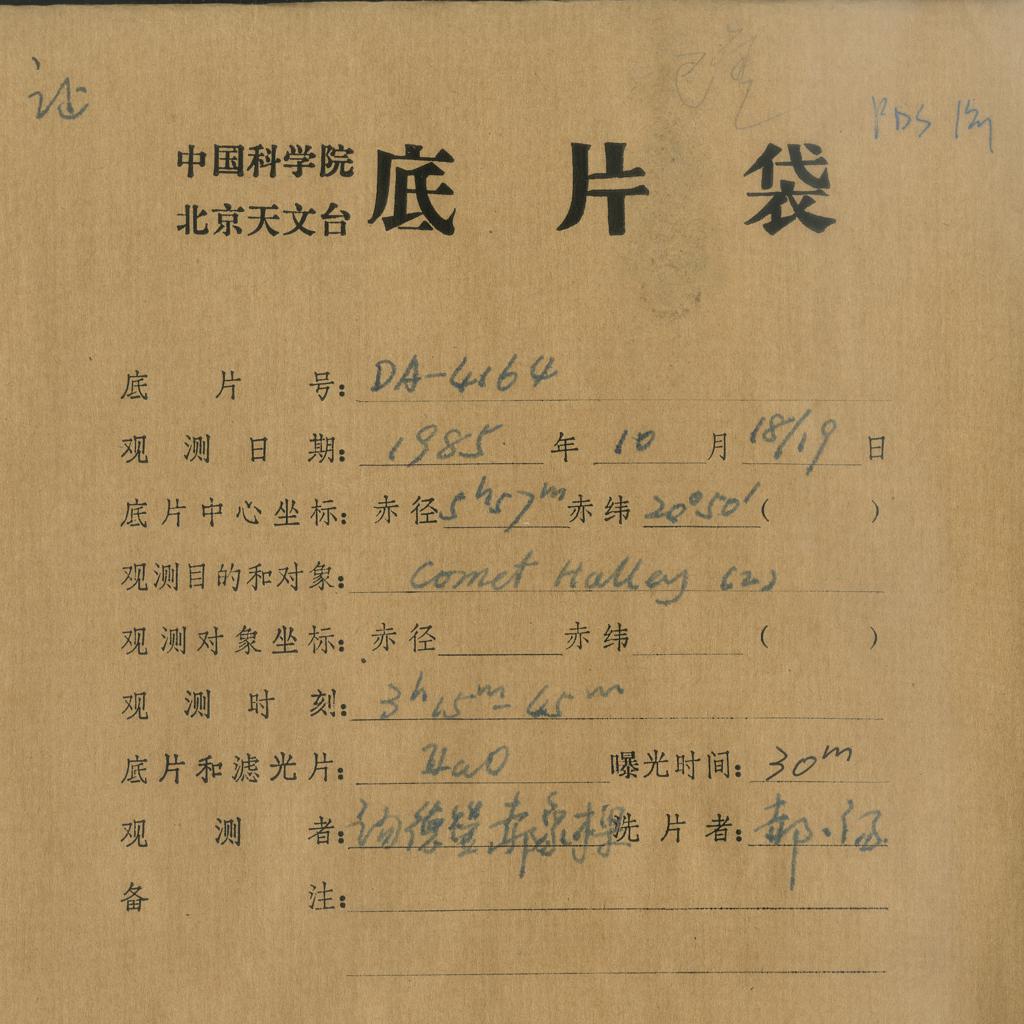 PDS
中国科学院
北京天文台
底片袋
底片号：DA-4164
观测日期：1985年10月18/19日
底片中心坐标：赤径5h57m赤纬20°50′（ ）
观测目的和对象：Comet Halley (2)
观测对象坐标：赤径 赤纬 （ ）
观测时刻：3h15m-45m
底片和滤光片：IIaO 曝光时间：30m
观测者： 洗片者：
备注：